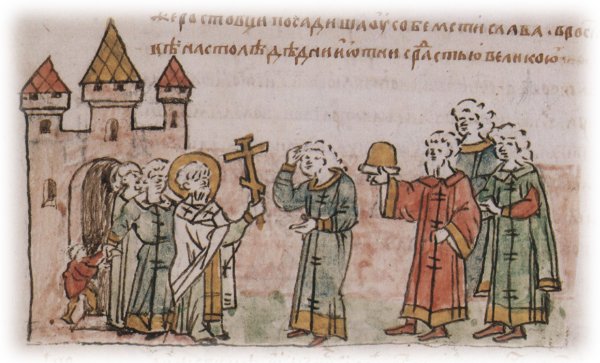 же ростовци посадиша оу собе мстислава · в рос
цѣ на столѣ дѣдни и ѿтни с рⷣастью великою